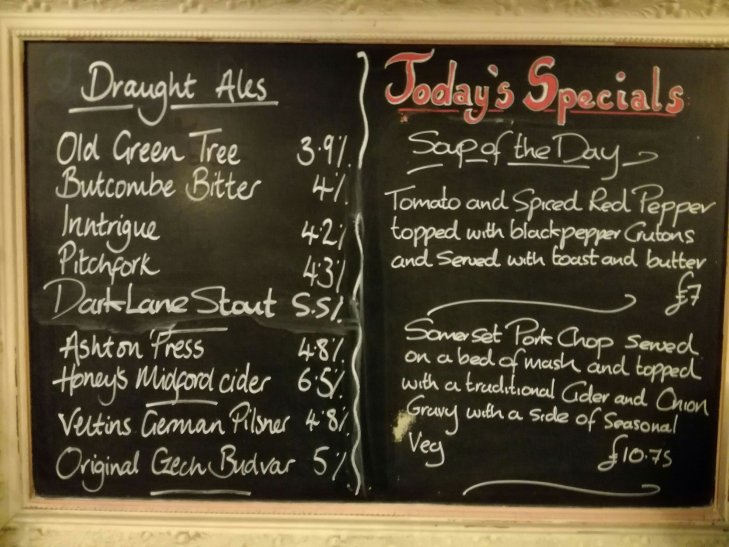 Draught Ales
Old Green Tree 3.9%
Butcombe Bitter 4%
Inntrigue 4.2%
Pitchfork 4.3%
Dark Lane Stout 5.5%
Ashton Press 4.8%
Honey's Midford cider 6.5%
Veltins German Pilsner 4.8%
Original Czech Budvar 5%
Today's Specials
Soup of the Day
Tomato and Spiced Red Pepper
topped with black pepper Crutons
and served with toast and butter
£7
Somerset Pork Chop served
on a bed of mash and topped
with a traditional Cider and Onion
Gravy with a side of Seasonal
Veg £10.75